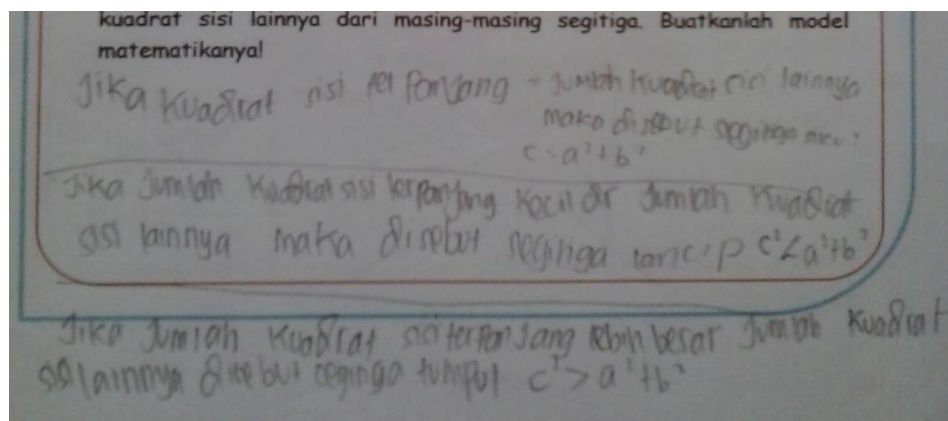 kuadrat sisi lainnya dari masing-masing segitiga. Buatkanlah model
matematikanya!
Jika kuadrat sisi terpanjang = jumlah kuadrat sisi lainnya
maka disebut segitiga
c = a² + b²
Jika jumlah kuadrat sisi terpanjang kecil dr jumlah kuadrat
sisi lainnya maka disebut segitiga lancip c² < a² + b²
Jika jumlah kuadrat sisi terpanjang lebih besar jumlah kuadrat
sisi lainnya disebut segitiga tumpul c² > a² + b²